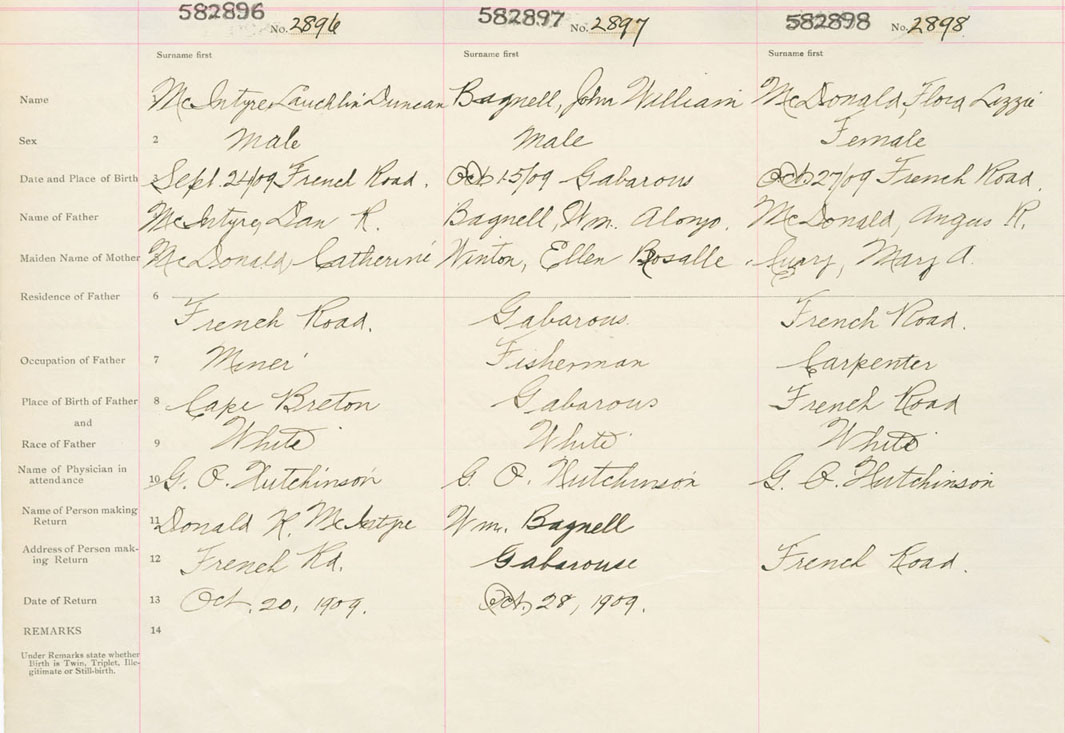 582896 No. 2896 582897 No. 2897 582898 No. 2898
Surname first Surname first Surname first
Name McIntyre, Lauchlin Duncan Bagnell, John William McDonald, Flora Lizzie
Sex 2 Male Male Female
Date and Place of Birth 3 Sept. 24/09 French Road. Oct 15/09 Gabarous Oct. 27/09 French Road.
Name of Father McIntyre, Dan R. Bagnell, Wm. Alonzo. McDonald, Angus R.
Maiden Name of Mother McDonald, Catherine Winton, Ellen Rosalle Curry, Mary A.
Residence of Father 6
French Road. Gabarous French Road.
Occupation of Father 7 Miner Fisherman Carpenter
Place of Birth of Father 8 Cape Breton Gabarous French Road
and
Race of Father 9 White White White
Name of Physician in
attendance 10 G. O. Hutchinson G. O. Hutchinson G. O. Hutchinson
Name of Person making
Return 11 Donald R. McIntyre Wm. Bagnell
Address of Person mak-
ing Return 12 French Rd. Gabarouse French Road.
Date of Return 13 Oct. 20, 1909. Oct. 28, 1909.
REMARKS 14
Under Remarks state whether
Birth is Twin, Triplet, Ille-
gitimate or Still-birth.